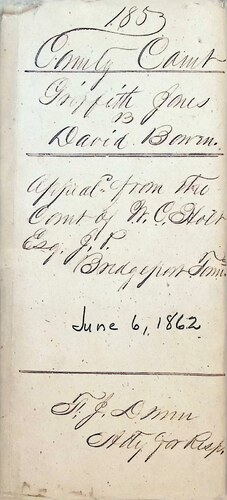 1853
County Court
Griffith Jones
vs
David Bowen.
Appeal from the
Court of W. C. Holt
Esq. J. P.
Bridgeport
June 6, 1862
T. J. Dunn
Atty for Resp.